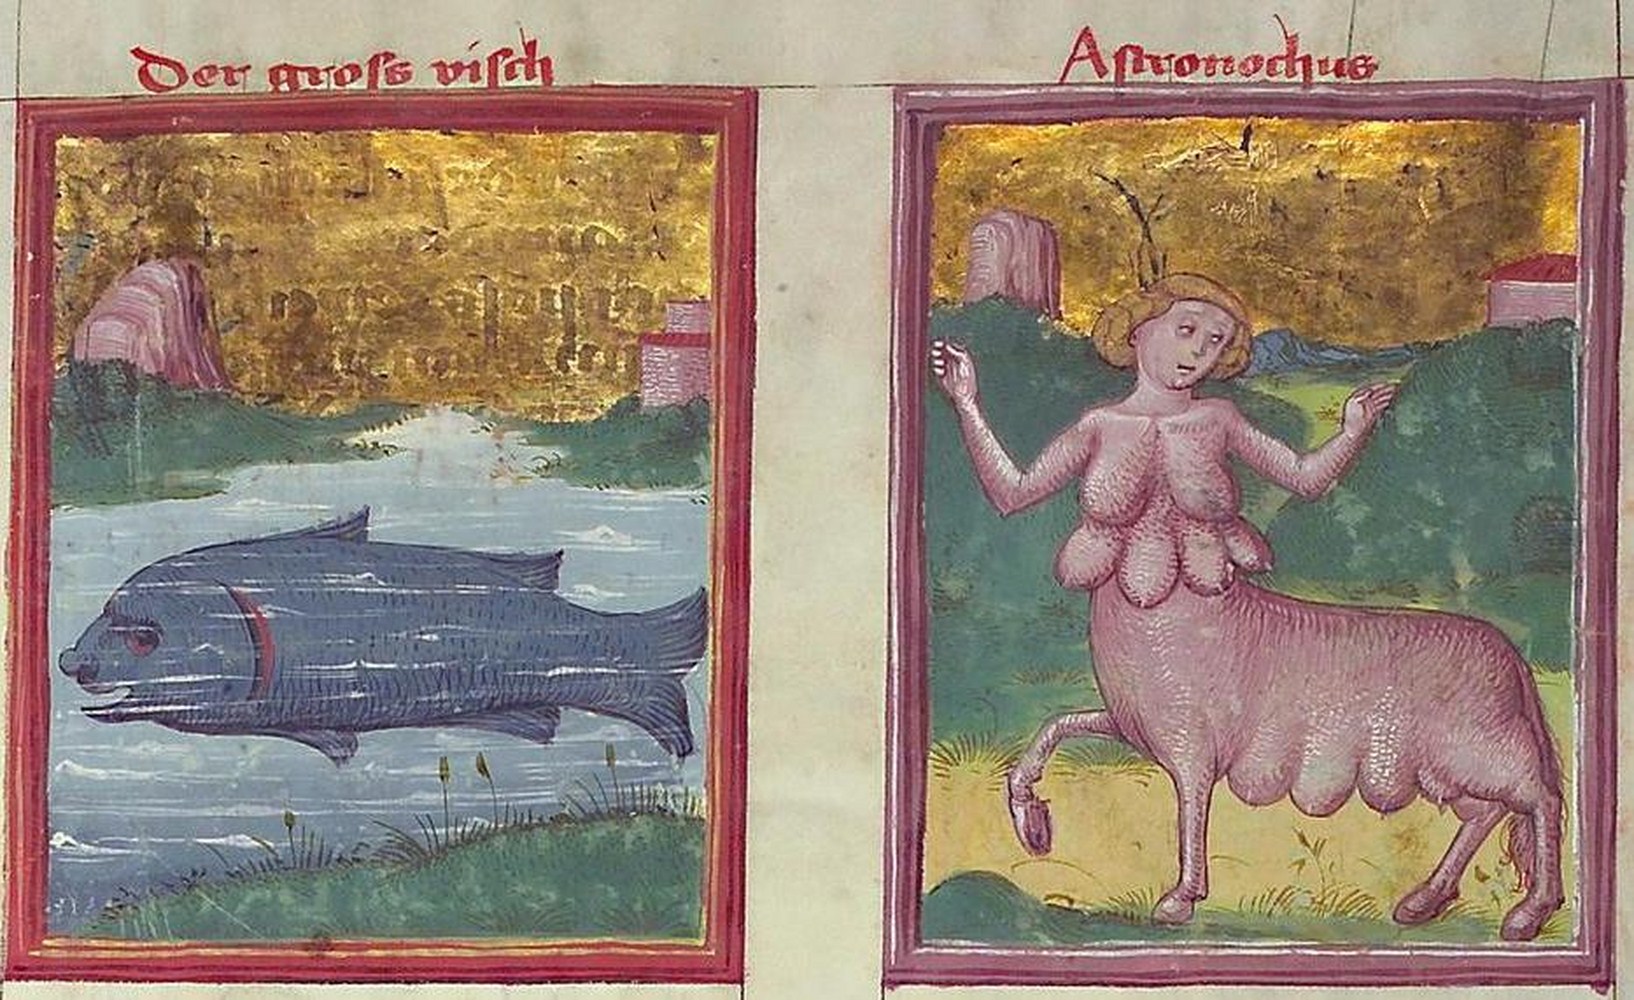 Der gross visch
Astronochus